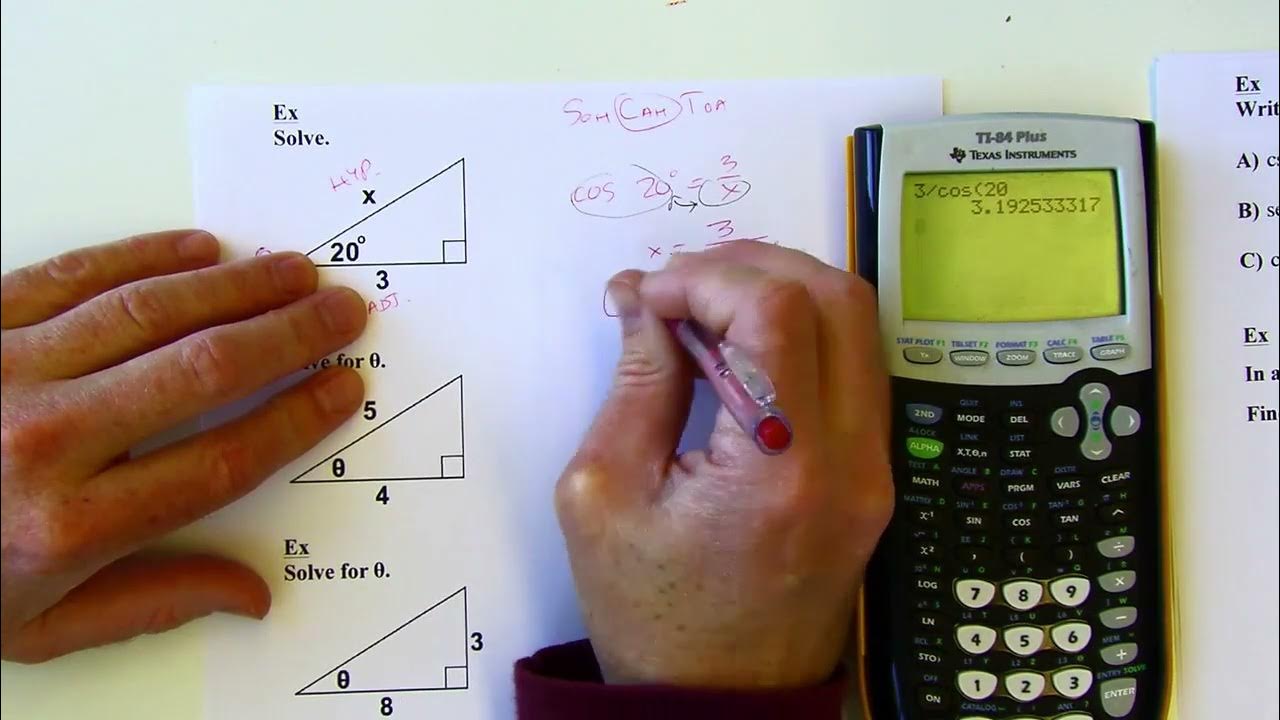 Ex
Solve.
HYP.
x
20°
3
ADJ.
SOH CAH TOA
cos 20° = 3/x
x = 3
ve for θ.
5
θ
4
Ex
Solve for θ.
3
θ
8
TI-84 Plus
TEXAS INSTRUMENTS
3/cos(20
3.192533317
STAT PLOT F1 TBLSET F2 FORMAT F3 CALC F4 TABLE F5
Y= WINDOW ZOOM TRACE GRAPH
QUIT INS
2ND MODE DEL
A-LOCK LINK LIST
ALPHA X,T,θ,n STAT
TEST A ANGLE B DRAW C DISTR
MATH APPS PRGM VARS CLEAR
MATRIX D SIN⁻¹ E COS⁻¹ F TAN⁻¹ G π H
x⁻¹ SIN COS TAN ^
√ I EE J { K } L e M
x² , ( ) ÷
10ˣ N u O v P w Q [ R
LOG 7 8 9 ×
eˣ S L4 T L5 U L6 V ] W
LN 4 5 6 −
RCL X L1 Y L2 Z L3 θ MEM "
STO› 1 2 3 +
OFF CATALOG ANS ? ENTRY SOLVE
ON ENTER
Ex
Writ
A) c
B) se
C) c
Ex
In a
Fin